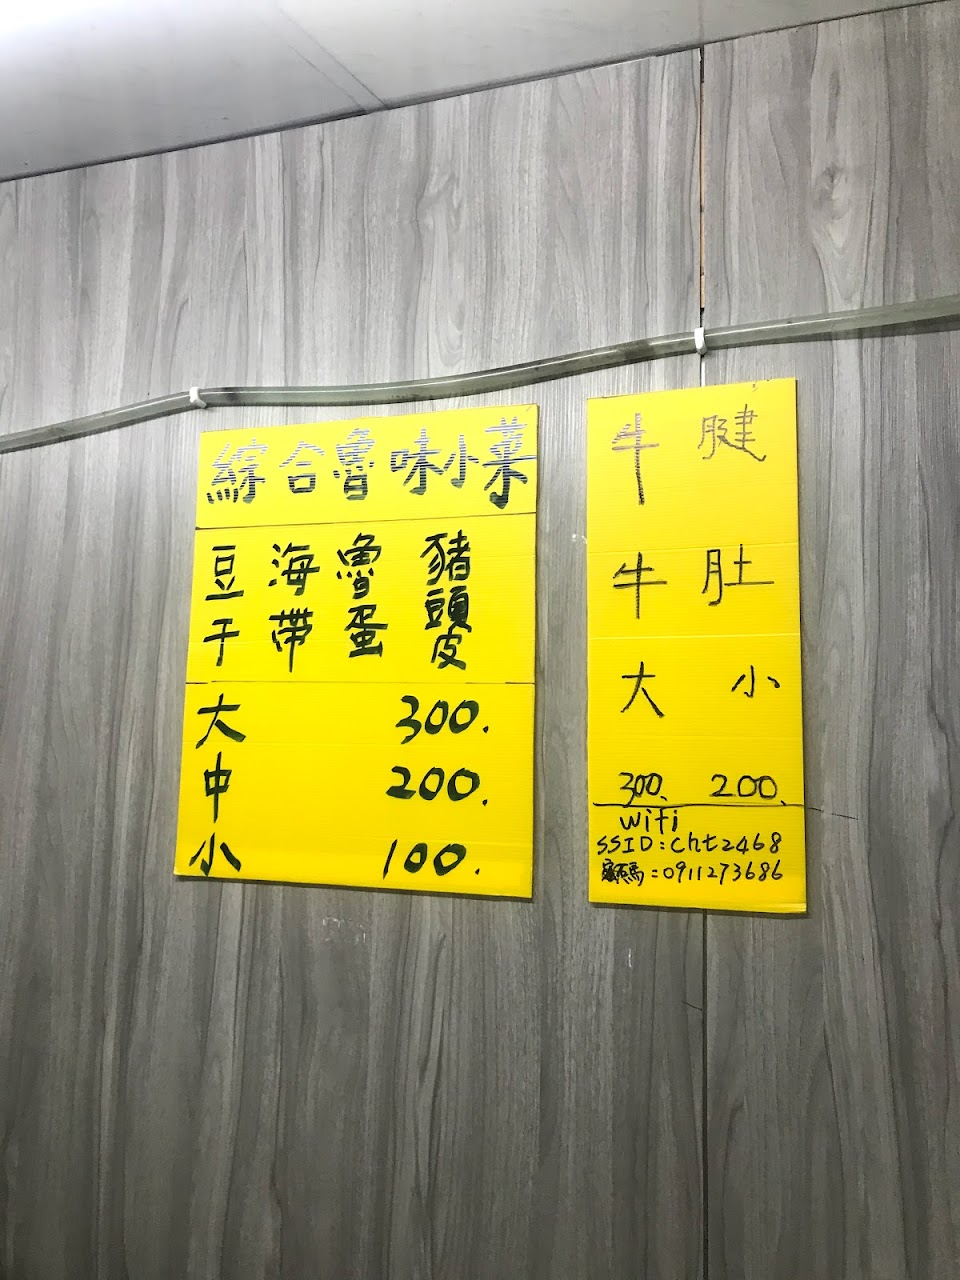 綜合魯味小菜
豆干
海帶
魯蛋
豬頭皮
大 300.
中 200.
小 100.
牛腱
牛肚
大 小
300. 200.
Wifi
SSID:cht2468
密碼:0911273686